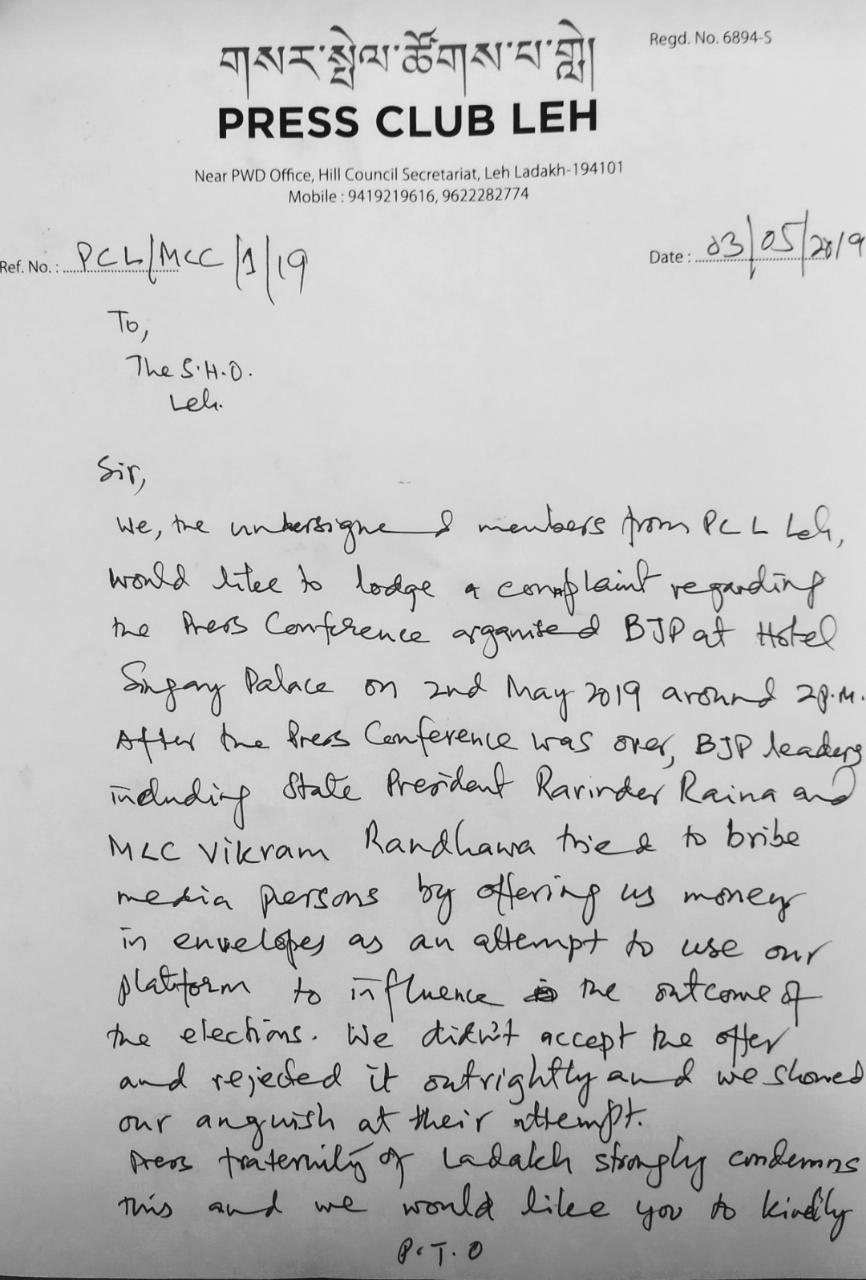 གསར་སྤེལ་ཚོགས་པ་གླེ།
Regd. No. 6894-S
PRESS CLUB LEH
Near PWD Office, Hill Council Secretariat, Leh Ladakh-194101
Mobile : 9419219616, 9622282774
Ref. No. : PCL/MCC/1/19
Date : 03/05/2019
To,
The S.H.O.
Leh.
Sir,
We, the undersigned members from PCL Leh,
would like to lodge a complaint regarding
the Press Conference organised BJP at Hotel
Singay Palace on 2nd May 2019 around 2p.m.
After the Press Conference was over, BJP leaders
including State President Ravinder Raina and
MLC Vikram Randhawa tried to bribe
media persons by offering us money
in envelopes as an attempt to use our
platform to influence the outcome of
the elections. We didn't accept the offer
and rejected it outrightly and we showed
our anguish at their attempt.
Press fraternity of Ladakh strongly condemns
this and we would like you to kindly
P.T.O